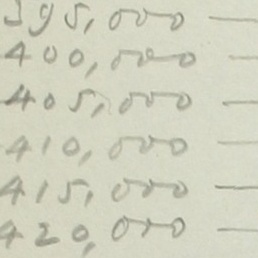 395,000 —
400,000 —
405,000 —
410,000 —
415,000 —
420,000 —